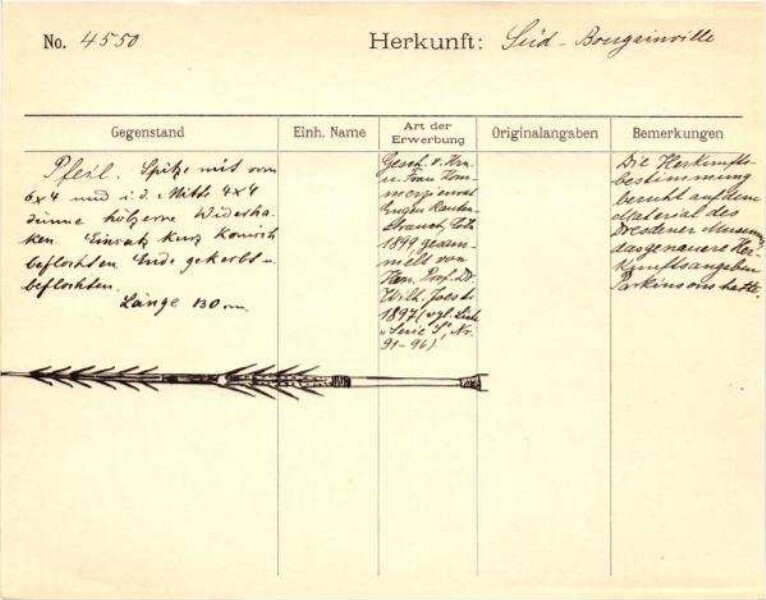 No. 4550 Herkunft: Süd-Bougainville
Gegenstand
Einh. Name
Art der
Erwerbung
Originalangaben
Bemerkungen
Pfeil. Spitze mit vorn
6x4 und i. d. Mitte 4x4
dünne hölzerne Widerha-
ken. Einsatz kurz konisch
beflochten. Ende gekerbt u.
beflochten.
Länge 130 cm.
Gesch. v. Hrn.
u. Frau Kom-
merzienrat
Eugen Rauten-
strauch,
1899 gesam-
melt von
Hrn. Prof. Dr.
Wilh. Joest
1897 (vgl. Liste
"Serie S", Nr.
91-96)
Die Herkunfts-
bestimmung
beruht auf dem
Material des
Dresdener Museums,
das genauere Her-
kunftsangaben
Parkinsons hatte.